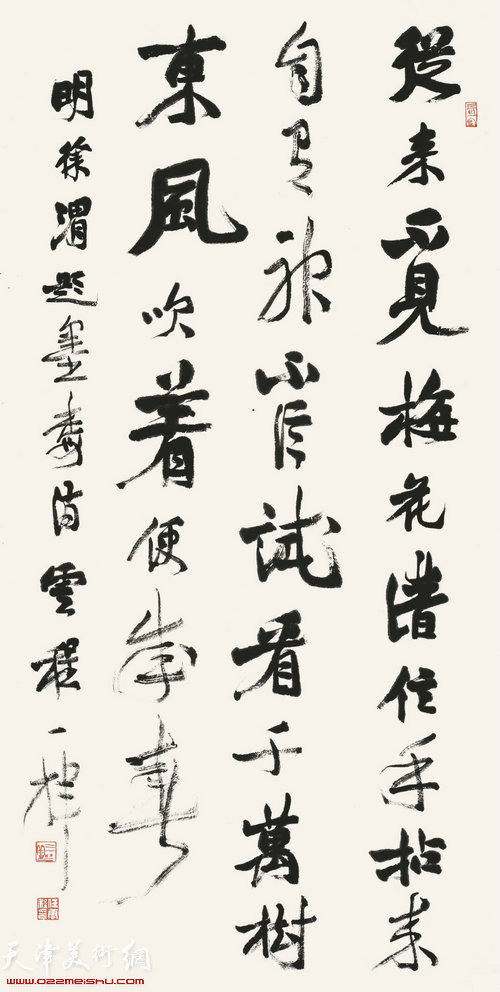 從来不見梅花譜信手拈来
自有神不信試看千萬樹
東風吹着便成春
明徐渭題畫梅詩雲程一
天津美術網
www.022meishu.com